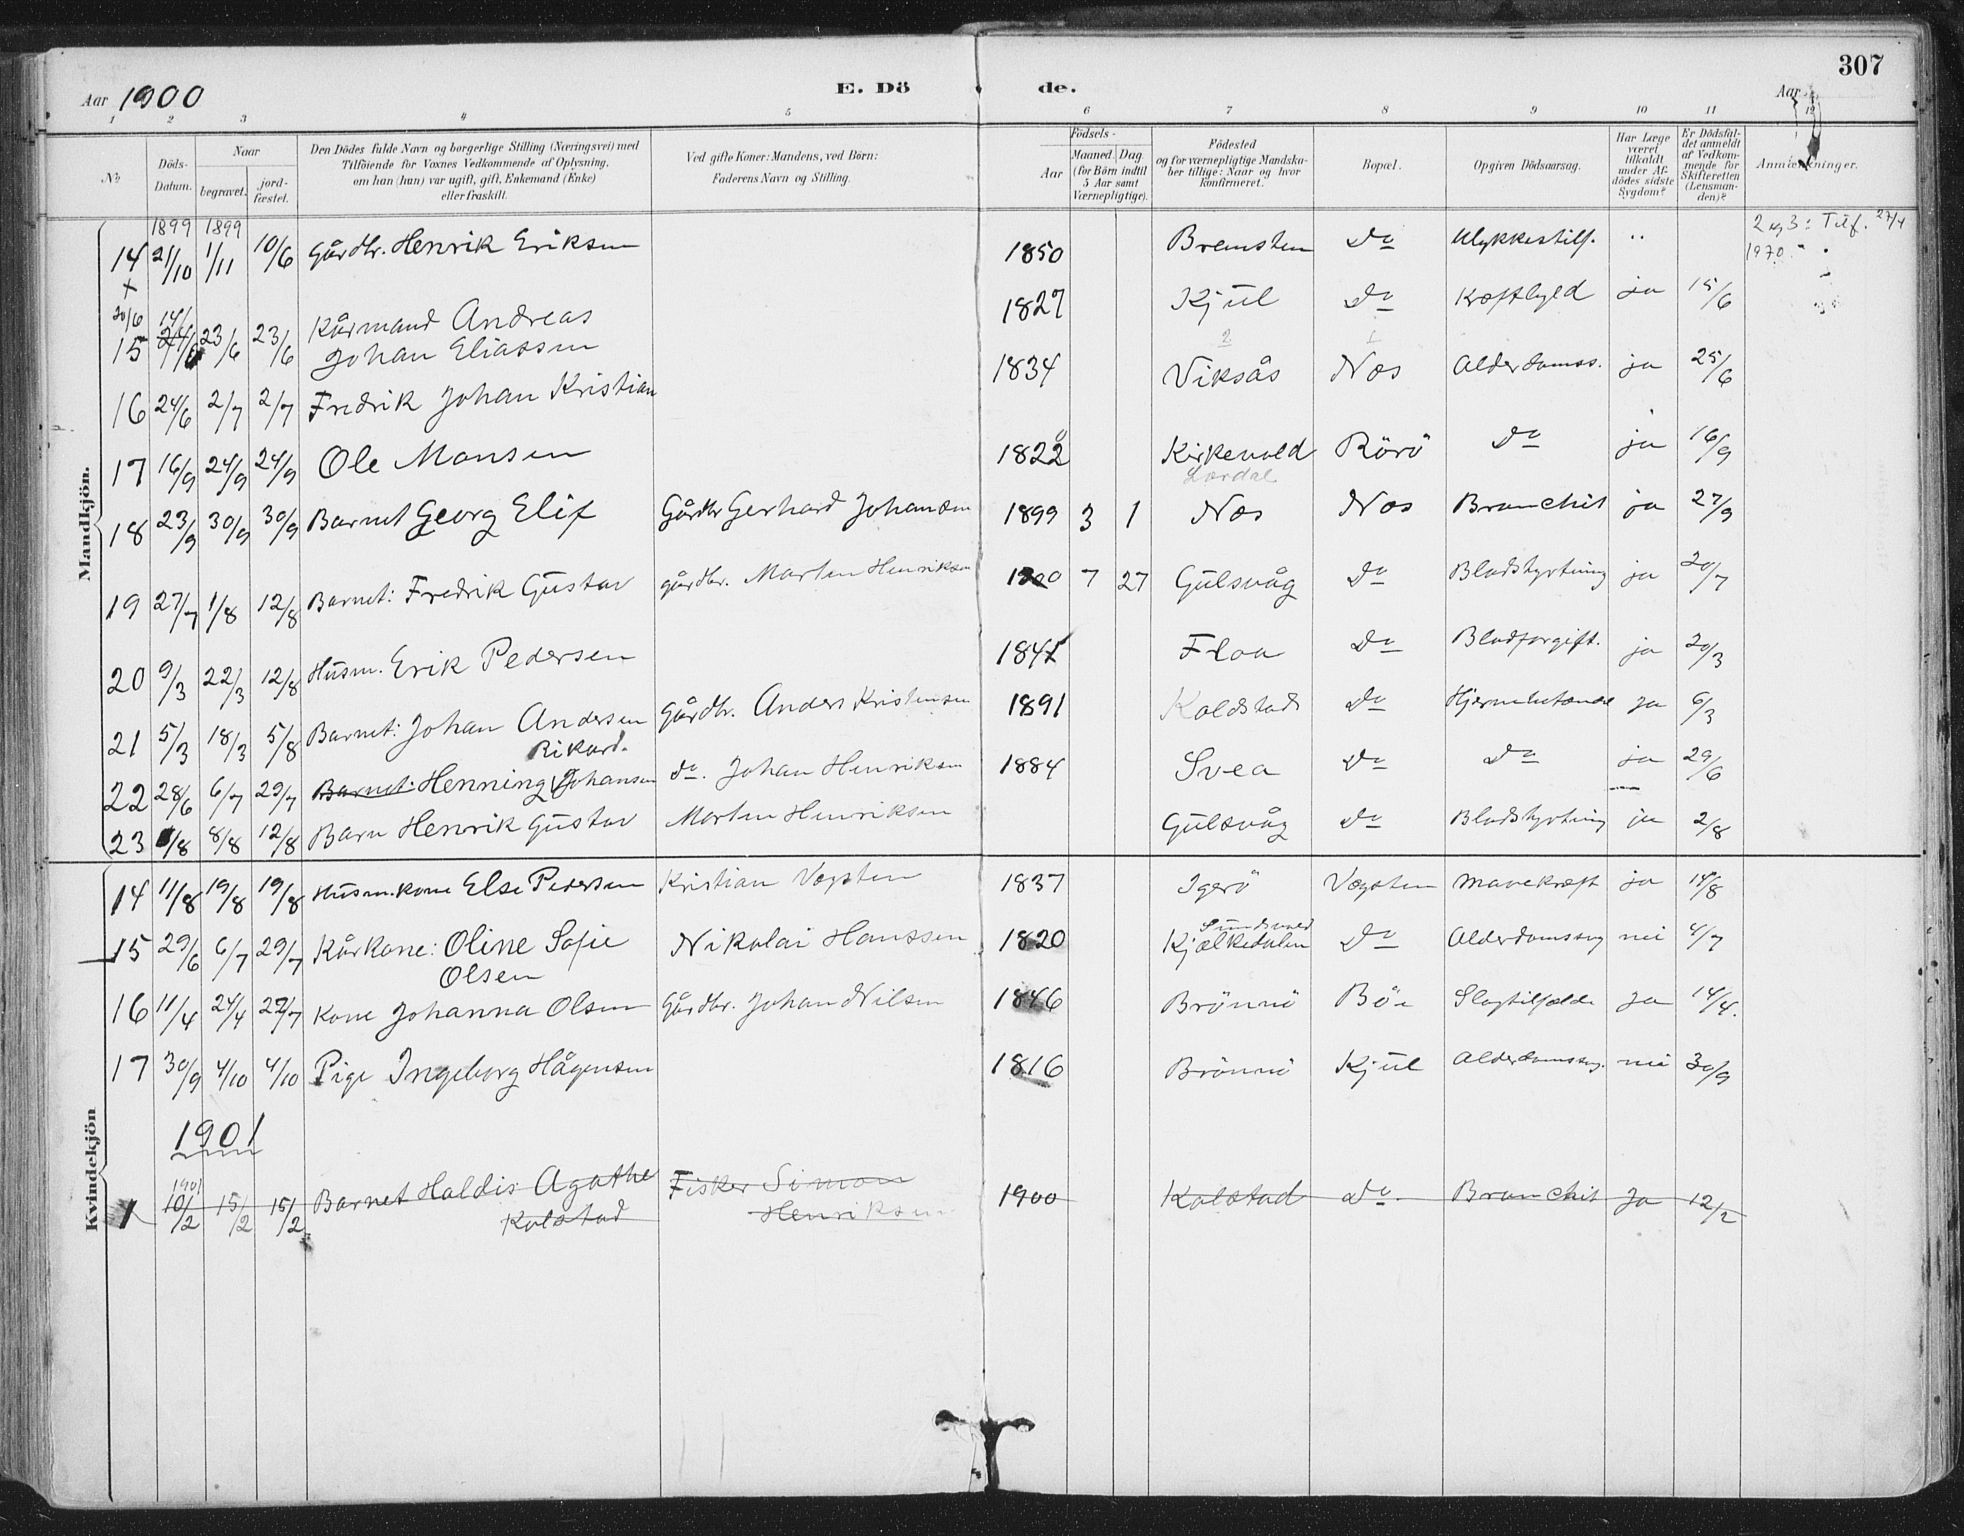 307
Aar 1900
E. Dö
de.
Aar
1 2 3 4 5 6 7 8 9 10 11 12
№
Döds-
Datum.
Naar
begravet.
jord-
fæstet.
Den Dödes fulde Navn og borgerlige Stilling (Næringsvei) med
Tilföiende for Voxnes Vedkommende af Oplysning,
om han (hun) var ugift, gift, Enkemand (Enke)
eller fraskilt.
Ved gifte Koner: Mandens, ved Börn:
Faderens Navn og Stilling.
Födsels-
Aar
Maaned. Dag.
(for Börn indtil
5 Aar samt
Værnepligtige).
Födested
og for værnepligtige Mandska-
ber tillige: Naar og hvor
konfirmeret.
Bopæl.
Opgiven Dödsaarsag.
Har Læge
været
tilkaldt
under Af-
dödes sidste
Sygdom?
Er Dödsfal-
det anmeldt
af Vedkom-
mende for
Skifteretten
(Lensman-
den)?
Anmærkninger.
Mandkjön.
1899 1899
14 21/10 1/11 10/6 Gårdbr. Henrik Eriksen 1850 Bremsten Do Ulykkestilf. ..
2 og 3: Tilf. 27/4
1970.
+
20/6 14/
15 24/6 23/6 23/6 Kårmand Andreas
Johan Eliassen 1827 Kjul Do Kræftbyld ja 15/6
16 24/6 2/7 2/7 Fredrik Johan Kristian 1834 Viksås Nos Alderdomss. ja 25/6
17 16/9 24/9 24/9 Ole Monsen 1822 Kirkevold Rörö Do ja 16/9
Lærdal
18 23/9 30/9 30/9 Barnet Georg Elif Gårdbr Gerhard Johansen 1899 3 1 Nos Nos Bronchit ja 27/9
19 27/7 1/8 12/8 Barnet: Fredrik Gustav gårdbr. Morten Henriksen 1900 7 27 Gulsvåg Do Blodstyrtning ja 20/7
20 9/3 22/3 12/8 Husm. Erik Pedersen 1841 Floa Do Blodforgift. ja 20/3
21 5/3 18/3 5/8 Barnet: Johan Andersen Gårdbr. Anders Kristensen 1891 Koldstad Do Hjernebetænd ja 6/3
Rikard.
22 28/6 6/7 29/7 Barnet: Henning Johansen do. Johan Henriksen 1884 Svea Do Do ja 29/6
23 1/8 8/8 12/8 Barn Henrik Gustav Morten Henriksen Gulsvåg Do Blodstyrtning ja 2/8
Kvindekjön
14 11/8 19/8 19/8 Husm.kone Else Pedersen Kristian Vogsten 1837 Igerö Vogsten Mavekræft ja 14/8
15 29/6 6/7 29/7 Kårkone: Oline Sofie
Olsen Nikolai Hanssen 1820 Sundsvold
Kjælkedalen Do Alderdomssvg nei 4/7
16 11/4 24/4 29/7 Kone Johanna Olsen Gårdbr. Johan Nilsen 1846 Brönnö Böe Slagtilfælde ja 14/4.
17 30/9 4/10 4/10 Pige Ingeborg Hågensen 1816 Brönnö Kjul Alderdomssvg. nei 30/9
1901
1901
1 10/2 15/2 15/2 Barnet Haldis Agathe
Kolstad Fisker Simon
Henriksen 1900 Kolstad Do. Bronchit Ja 12/2